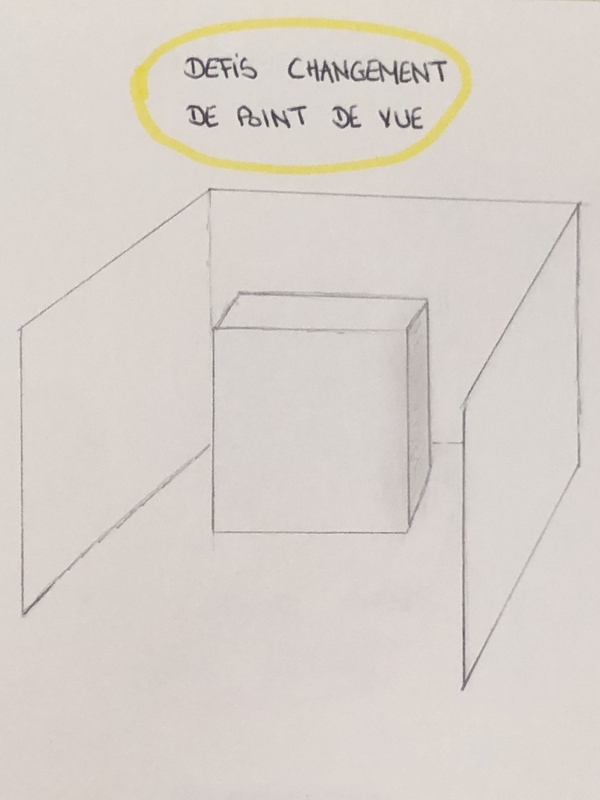 DEFIS CHANGEMENT
DE POINT DE VUE